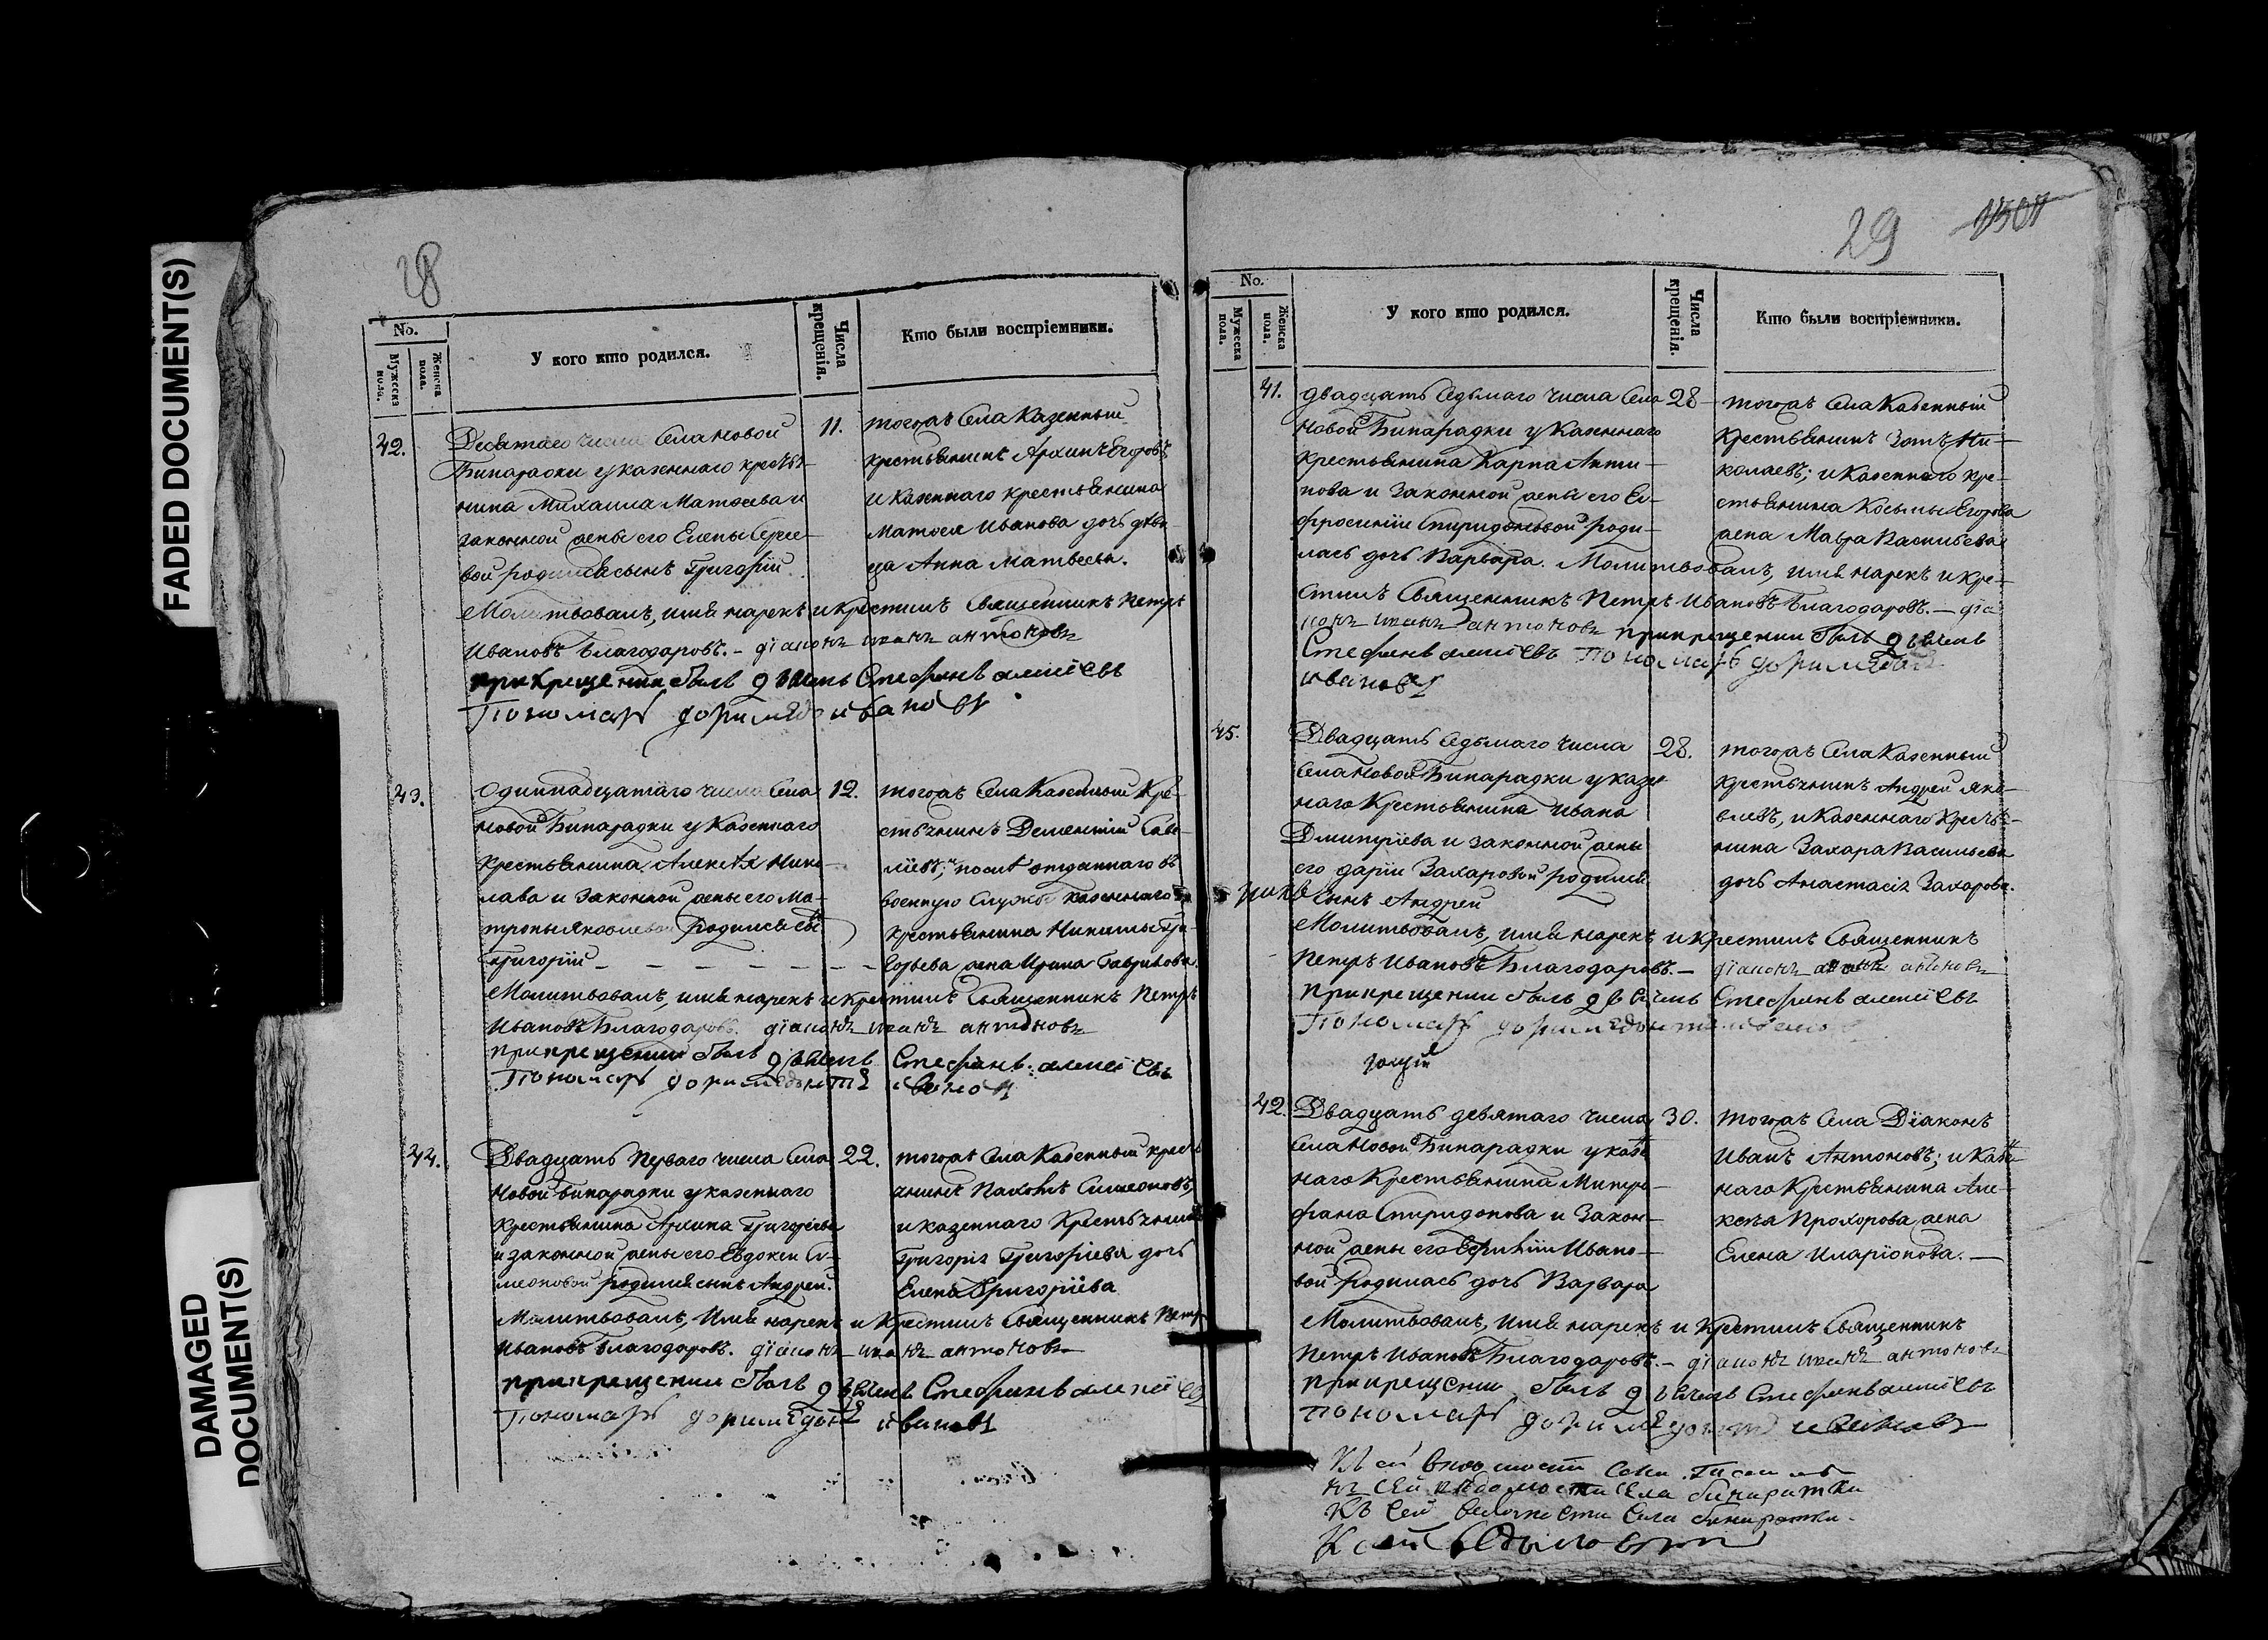 FADED DOCUMENT(S)
DAMAGED
DOCUMENT(S)
28
No.
Мужеска пола.
Женска пола.
У кого кто родился.
Числа крещенія.
Кто были воспріемники.
42.
Десятаго числа Села Новой
Бинарадки у казеннаго кресть-
нина Михаила Матвеева и
законной жены его Елены Сергее-
вой родился сынъ Григорій
11.
тогожъ Села Казенный
крестьянинъ Архипъ Егоровъ
и казеннаго крестьянина
Матвея Иванова дочь деви-
ца Анна Матвеева.
Молитвовалъ, имя нарекъ и крестилъ Священникъ Петръ
Ивановъ Благодаровъ. – діаконъ иванъ антоновъ
при крещении былъ дьячекъ Стефанъ алексіевъ
Пономарь доримедо ивановъ
43.
Одиннадцатаго числа Села
Новой Бинарадки у Казеннаго
крестьянина Алексея Нико-
лаева и законной жены его Ма-
троны Яковлевой родился сы
Григорій
12.
тогожъ Села Казенный Кре-
стьянинъ Дементий Саве-
ліевъ; и после отданнаго въ
военную Службу казеннаго
крестьянина Никиты Гри-
горьева жена Ирина Гаврилова.
Молитвовалъ, имя нарекъ и крестилъ Священникъ Петръ
Ивановъ Благодаровъ. діаконъ иванъ антоновъ
при крещении былъ дьячекъ Стефанъ алексіевъ
Пономарь доримедонтъ ивановъ
44.
Двадцать Перваго числа Села
Новой Бинарадки у казеннаго
крестьянина Архипа Григорьева
и законной жены его Евдокеи Си-
меоновой родился сынъ Андрей.
22.
тогожъ Села Казенный кресть
янинъ Пахомъ Симеоновъ,
и казеннаго Крестьянина
Григорія Григоріева дочь
Елена Григоріева
Молитвовалъ, Имя нарекъ и Крестилъ Священникъ Петръ
Ивановъ Благодаровъ. діаконъ иванъ антоновъ
при крещении былъ дьячекъ Стефанъ алексіевъ
Пономарь доримедонъ ивановъ
29
No.
Мужеска пола.
Женска пола.
У кого кто родился.
Числа крещенія.
Кто были воспріемники.
41.
Двадцать Седьмаго числа Села
Новой Бинарадки у Казеннаго
крестьянина Карпа Анти-
пова и Законной жены его Ев-
фросиніи Спиридоновой роди-
лась дочь Варвара.
28
тогожъ Села Казенный
крестьянинъ Зотъ Ни-
колаевъ; и Казеннаго кре-
стьянина Косьмы Егорова
жена Мавра Васильева
Молитвовалъ, имя нарекъ и кре-
стилъ Священникъ Петръ Ивановъ Благодаровъ. – діа
конъ иванъ антоновъ при крещении былъ дьячекъ
Стефанъ алексіевъ Пономарь доримедонъ
ивановъ
45.
Двадцать Седьмаго числа
Села Новой Бинарадки у казе
наго Крестьянина Ивана
Дмитріева и законной жены
его Даріи Захаровой родился
сынъ Андрей
28.
тогожъ Села Казенный
крестьянинъ Андрей Яко-
влевъ, и Казеннаго Кресть-
нина Захара Васильева
дочь Анастасія Захарова.
Молитвовалъ, имя нарекъ и крестилъ Священникъ
Петръ Ивановъ Благодаровъ. – діаконъ иванъ антоновъ
при крещении былъ дьячекъ Стефанъ алексіевъ
Пономарь доримедонтъ ивановъ
42.
Двадцать девятаго числа
Села Новой Бинарадки у казе
наго Крестьянина Митро-
фана Спиридонова и Закон-
ной жены его Евфиміи Ивано-
вой родилась дочь Варвара
30.
тогожъ Села Діаконъ
Иванъ Антоновъ; и Казе
наго Крестьянина Але-
ксея Прохорова жена
Елена Иларіонова. –
Молитвовалъ, имя нарекъ и Крестилъ Священникъ
Петръ Ивановъ Благодаровъ. – діаконъ иванъ антоновъ
при крещении былъ дьячекъ Стефанъ алексіевъ
Пономарь доримедонтъ ивановъ
къ сей ведомости Села бинаратки
Къ сей ведомости Села бинаратки.